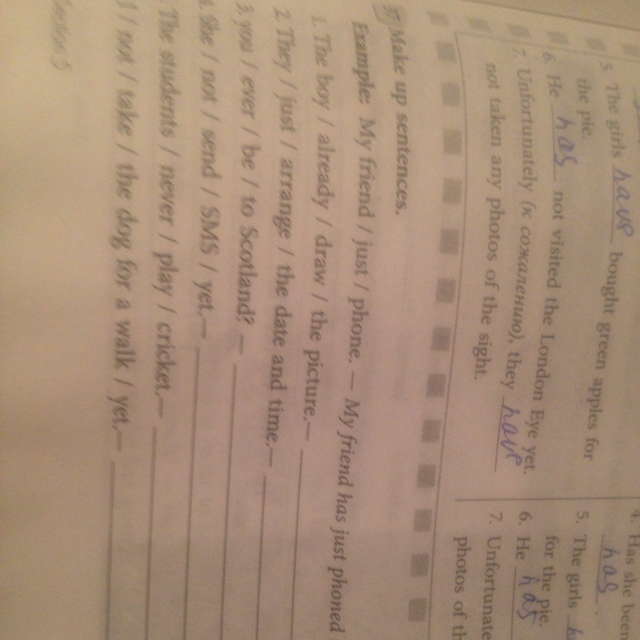 5. The girls have bought green apples for
the pie.
6. He has not visited the London Eye yet.
7. Unfortunately (к сожалению), they have
not taken any photos of the sight.
4. Has she been
has
5. The girls
for the pie.
6. He has
7. Unfortunate
photos of th
Make up sentences.
Example: My friend / just / phone. — My friend has just phoned
1. The boy / already / draw / the picture.—
2. They / just / arrange / the date and time.—
3. you / ever / be / to Scotland? —
She / not / send / SMS / yet.—
The students / never / play / cricket.—
I / not / take / the dog for a walk / yet.—